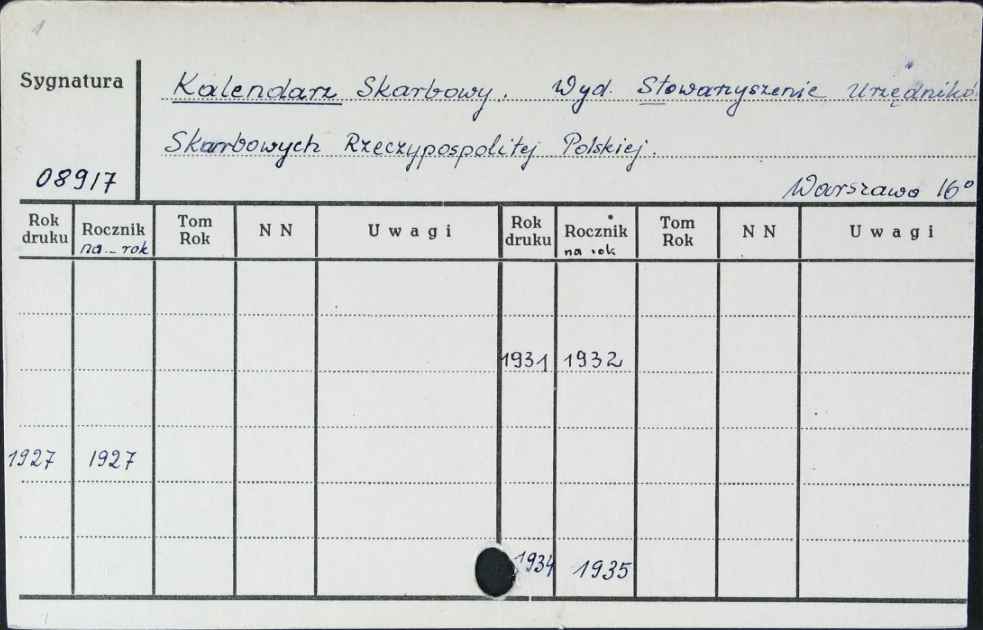 Sygnatura
Kalendarz Skarbowy. Wyd. Stowarzyszenie Urzędników
Skarbowych Rzeczypospolitej Polskiej.
08917
Warszawa 16°
Rok druku Rocznik na rok Tom Rok N N Uwagi Rok druku Rocznik na rok Tom Rok N N Uwagi
1931 1932
1927 1927
1934 1935